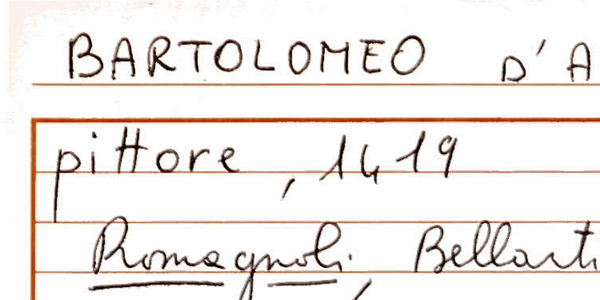 BARTOLOMEO D'A
pittore, 1419
Romagnoli, Bellarti